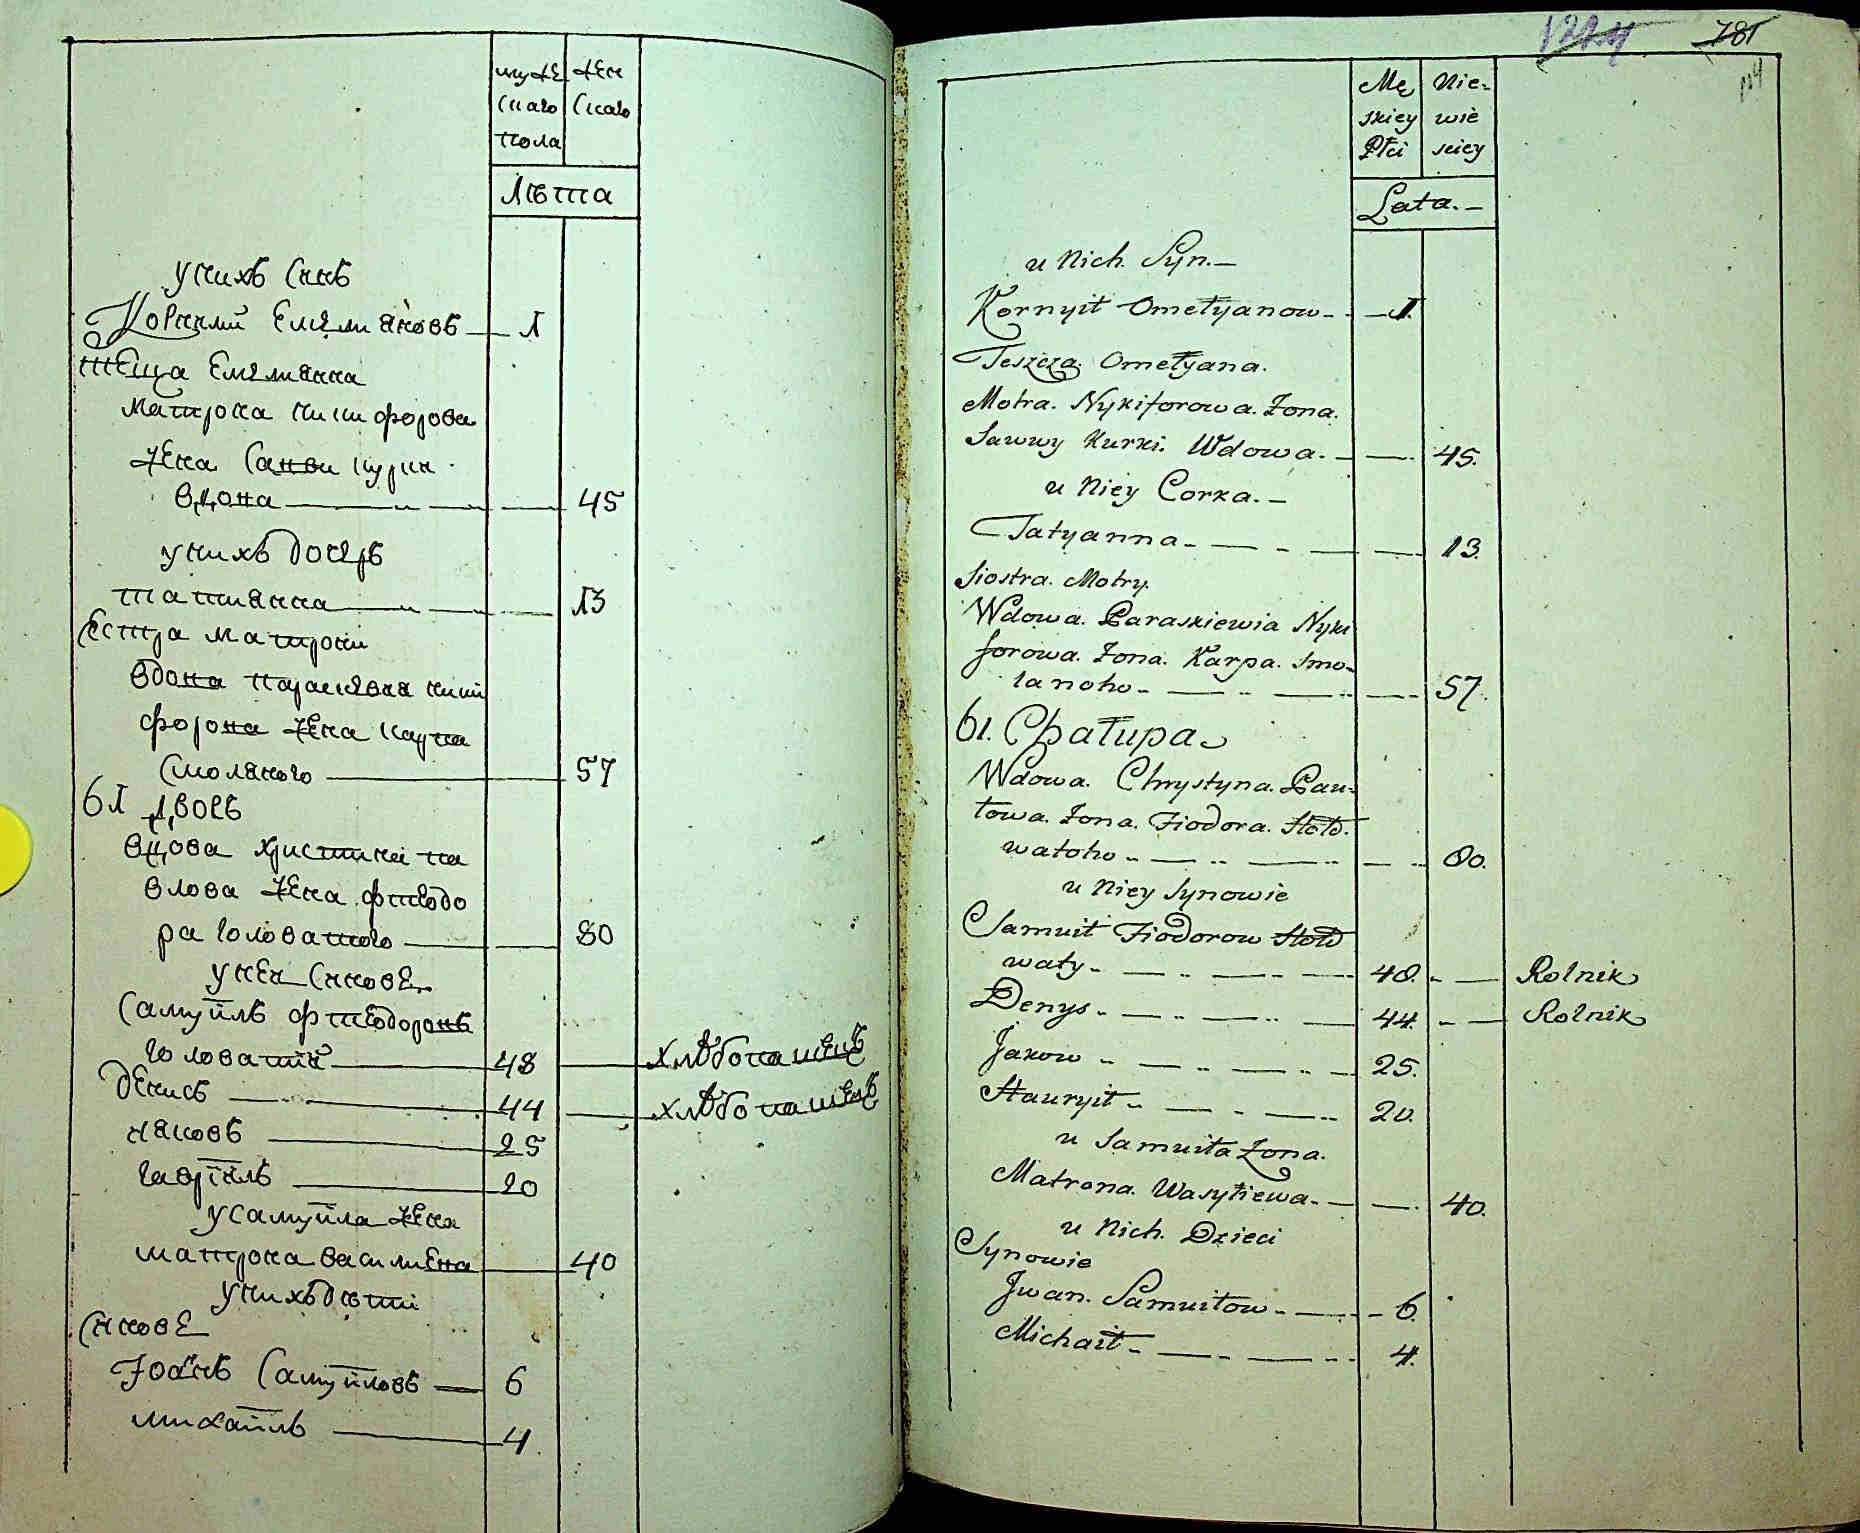 мужескаго пола
женскаго
Лѣта
у нихъ снъ
Корнилій Емелиановъ 1
теща Емелиана
матрона никифорова
жена саввы курки
вдова 45
у нихъ дочерь
татианна 13
сестра матрони
вдова параскевиа ники
форова жена карпа
смоляного 57
61 дворъ
вдова христина па
влова жена фѣодо
ра головатого 80
у нея снновѐ
Самуилъ фѣодоровъ
головатій 48 хлѣбопашецъ
денисъ 44 хлѣбопашецъ
иаковъ 25
гавріилъ 20
у самуила жена
матрона василиева 40
у нихъ дѣти
снновѐ
Іоанъ Самуиловъ 6
михаилъ 4
781
114
Męskiey Płci
Niewieściey
Lata.
u Nich. Syn.
Kornyił Omełyanow 1.
Teszcza. Omełyana.
Motra. Nykiforowa. Żona.
Sawwy Kurki. Wdowa. 45.
u Niey Corka.
Tatyanna 13.
Siostra. Motry.
Wdowa. Paraskiewia Nyki
forowa. Żona. Karpa. Smo-
lanoho 57.
61. Chałupa
Wdowa. Chrystyna. Paw-
łowa. Żona. Fiodora. Hoło.
watoho 80.
u Niey Synowie
Samuił Fiodorow Hoło
waty 48. Rolnik
Denys 44. Rolnik
Jakow 25.
Hauryił 20.
u Samuiła Żona.
Matrona. Wasyliewa 40.
u Nich. Dzieci
Synowie
Jwan. Samuiłow 6.
Michaił 4.